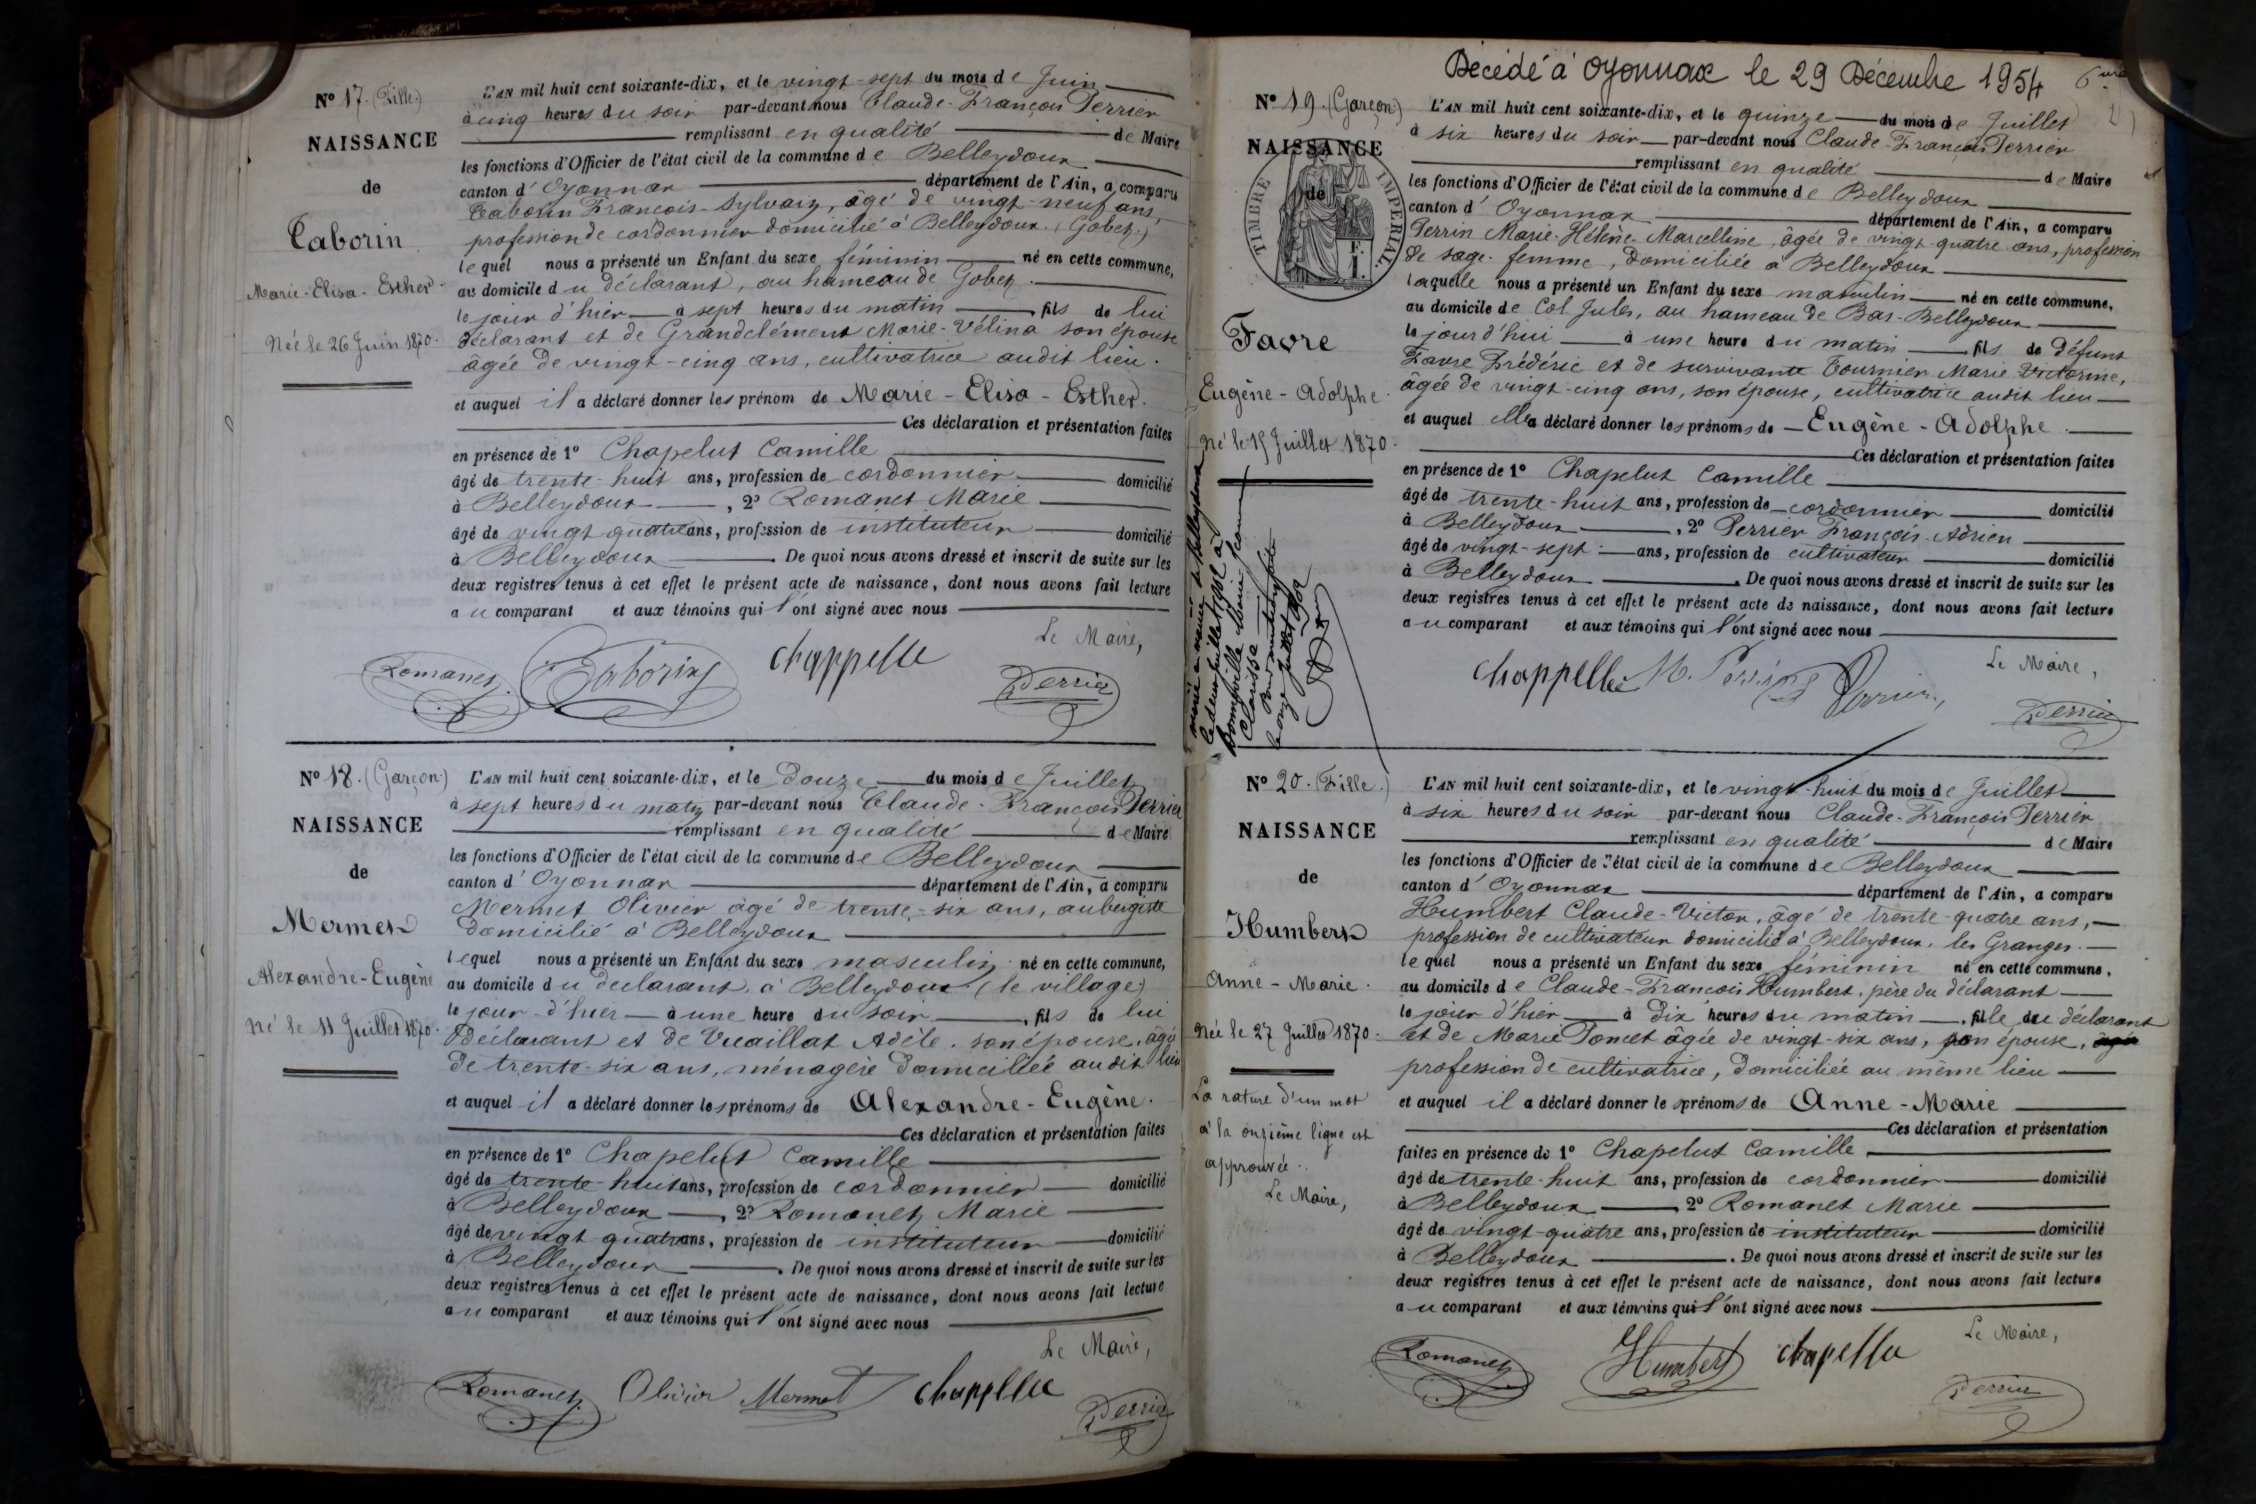 N° 17. (Fille.)
NAISSANCE
de
Taborin
Marie-Elisa-Esther
Née le 26 Juin 1870.
L'AN mil huit cent soixante-dix, et le vingt-sept du mois de Juin
à cinq heures du soir par-devant nous Claude-François Perrier
remplissant en qualité de Maire
les fonctions d'Officier de l'état civil de la commune de Belleydoux
canton d'Oyonnax département de l'Ain, a comparu
Taborin François-Sylvain, âgé de vingt-neuf ans,
profession de cordonnier domicilié à Belleydoux. (Gobet.)
lequel nous a présenté un Enfant du sexe féminin né en cette commune,
au domicile du déclarant, au hameau de Gobet.
le jour d'hier à sept heures du matin fils de lui
déclarant et de Grandclément Marie-Vélina son épouse
âgée de vingt-cinq ans, cultivatrice audit lieu.
et auquel il a déclaré donner les prénom de Marie-Elisa-Esther.
Ces déclaration et présentation faites
en présence de 1° Chapelut Camille
âgé de trente-huit ans, profession de cordonnier domicilié
à Belleydoux, 2° Romanet Marie
âgé de vingt quatre ans, profession de instituteur domicilié
à Belleydoux. De quoi nous avons dressé et inscrit de suite sur les
deux registres tenus à cet effet le présent acte de naissance, dont nous avons fait lecture
au comparant et aux témoins qui l'ont signé avec nous
Le Maire,
Romanet Taborin chappelle Perrier
N° 18. (Garçon.)
NAISSANCE
de
Mermet
Alexandre-Eugène
Né le 11 Juillet 1870.
L'AN mil huit cent soixante-dix, et le douze du mois de Juillet
à sept heures du matin par-devant nous Claude-François Perrier
remplissant en qualité de Maire
les fonctions d'Officier de l'état civil de la commune de Belleydoux
canton d'Oyonnax département de l'Ain, a comparu
Mermet Olivier âgé de trente-six ans, aubergiste
domicilié à Belleydoux
lequel nous a présenté un Enfant du sexe masculin né en cette commune,
au domicile du déclarant, à Belleydoux (le village)
le jour d'hier à une heure du soir, fils de lui
Déclarant et de Vuaillat Adèle, son épouse, âgée
de trente-six ans, ménagère domiciliée audit lieu
et auquel il a déclaré donner les prénoms de Alexandre-Eugène.
Ces déclaration et présentation faites
en présence de 1° Chapelut Camille
âgé de trente-huit ans, profession de cordonnier domicilié
à Belleydoux, 2° Romanet Marie
âgé de vingt quatre ans, profession de instituteur domicilié
à Belleydoux. De quoi nous avons dressé et inscrit de suite sur les
deux registres tenus à cet effet le présent acte de naissance, dont nous avons fait lecture
au comparant et aux témoins qui l'ont signé avec nous
Le Maire,
Romanet Olivier Mermet chappelle Perrier
Décédé à Oyonnax le 29 Décembre 1954
N° 19. (Garçon.)
NAISSANCE
de
TIMBRE IMPERIAL
Favre
Eugène-Adolphe.
Né le 15 Juillet 1870.
L'AN mil huit cent soixante-dix, et le quinze du mois de Juillet
à six heures du soir par-devant nous Claude-François Perrier
remplissant en qualité de Maire
les fonctions d'Officier de l'état civil de la commune de Belleydoux
canton d'Oyonnax département de l'Ain, a comparu
Perrin Marie-Hélène-Marcelline, âgée de vingt-quatre ans, profession
de sage-femme, domiciliée à Belleydoux
laquelle nous a présenté un Enfant du sexe masculin né en cette commune,
au domicile de Col Jules, au hameau de Bas-Belleydoux
le jour d'hui à une heure du matin fils de défunt
Favre Frédéric et de survivante Tournier Marie Victorine,
âgée de vingt-cinq ans, son épouse, cultivatrice audit lieu
et auquel elle a déclaré donner les prénoms de Eugène-Adolphe
Ces déclaration et présentation faites
en présence de 1° Chapelut Camille
âgé de trente-huit ans, profession de cordonnier domicilié
à Belleydoux, 2° Perrier François-Adrien
âgé de vingt-sept ans, profession de cultivateur domicilié
à Belleydoux. De quoi nous avons dressé et inscrit de suite sur les
deux registres tenus à cet effet le présent acte de naissance, dont nous avons fait lecture
au comparant et aux témoins qui l'ont signé avec nous
Le Maire,
chappelle M. Perrin Perrier Perrier
N° 20. (Fille.)
NAISSANCE
de
Humbert
Anne-Marie.
Née le 27 Juillet 1870.
La rature d'un mot
à la onzième ligne est
approuvée.
Le Maire,
L'AN mil huit cent soixante-dix, et le vingt-huit du mois de Juillet
à six heures du soir par-devant nous Claude-François Perrier
remplissant en qualité de Maire
les fonctions d'Officier de l'état civil de la commune de Belleydoux
canton d'Oyonnax département de l'Ain, a comparu
Humbert Claude-Victor, âgé de trente-quatre ans,
profession de cultivateur domicilié à Belleydoux, les Granges.
lequel nous a présenté un Enfant du sexe féminin né en cette commune,
au domicile de Claude-François Humbert, père du déclarant
le jour d'hier à dix heures du matin, fille du déclarant
et de Marie Poncet âgée de vingt-six ans, son épouse,
profession de cultivatrice, domiciliée au même lieu
et auquel il a déclaré donner le sprénoms de Anne-Marie
Ces déclaration et présentation
faites en présence de 1° Chapelut Camille
âgé de trente-huit ans, profession de cordonnier domicilié
à Belleydoux 2° Romanet Marie
âgé de vingt-quatre ans, profession de instituteur domicilié
à Belleydoux. De quoi nous avons dressé et inscrit de suite sur les
deux registres tenus à cet effet le présent acte de naissance, dont nous avons fait lecture
au comparant et aux témoins qui l'ont signé avec nous
Le Maire,
Romanet Humbert chapelle Perrier